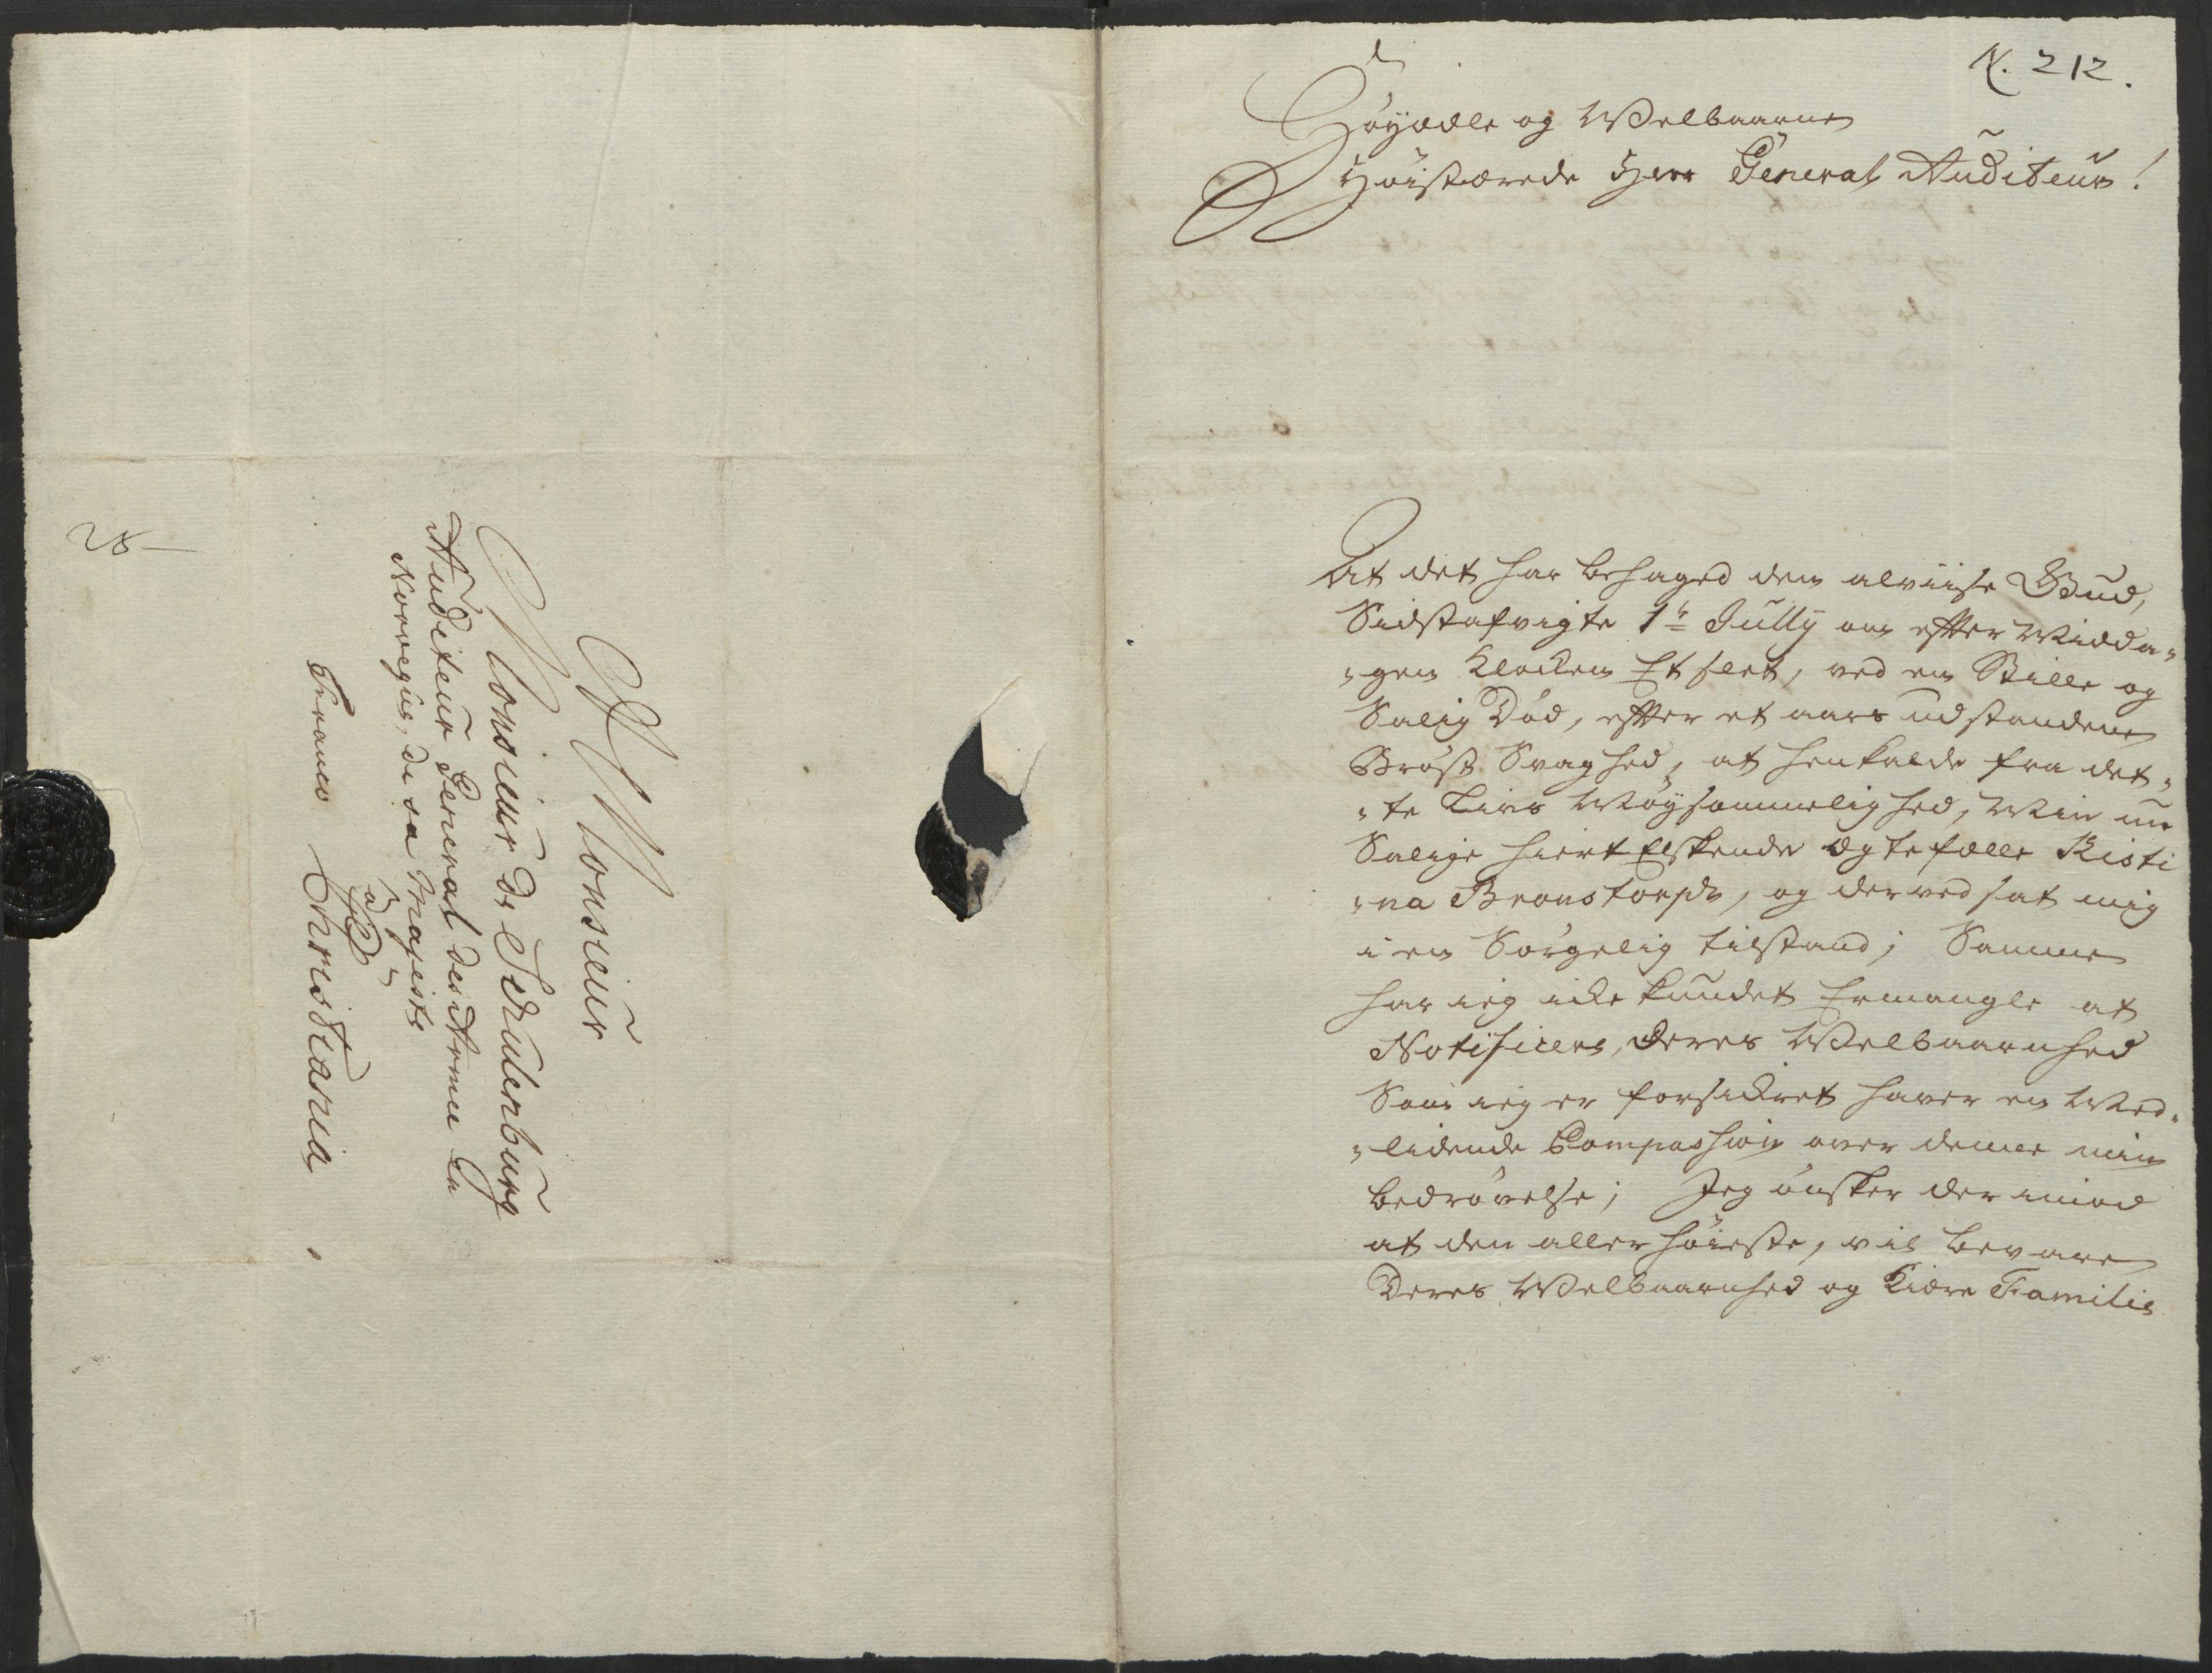 Monsieur
Monsieur de Schulenburg
Auditeur General des Armee en
Norvegue, de sa Majesté
à
Franco Christiania
28
N. 212.
Höyædle og Welbaarne
Höistærede Herr General Auditeur!
At det har behaged den alviise Gud,
Sidstafvigte 1te Jully om efter Midda„
„gen Klocken Et slet, ved en Stille og
Salig Död, efter et aars udstandene
Bröst Svaghed, at henkalde fra det„
„te Livs Möysommelighed, Min nu
Salige hiertElskende Ægtefælle Kisti
„na Bronstorph, og derved sat mig
i en Sörgelig tilstand; Samme
har ieg icke kundet Ermangle at
Notificere, Deres Welbaarnhed
Som ieg er forsickret haver en Med„
„lidende Compashion over denne min
bedrövelse; Jeg önsker der imod
at den allerhöieste, vil bevare
Deres Welbaarnhed og Kiære Familie